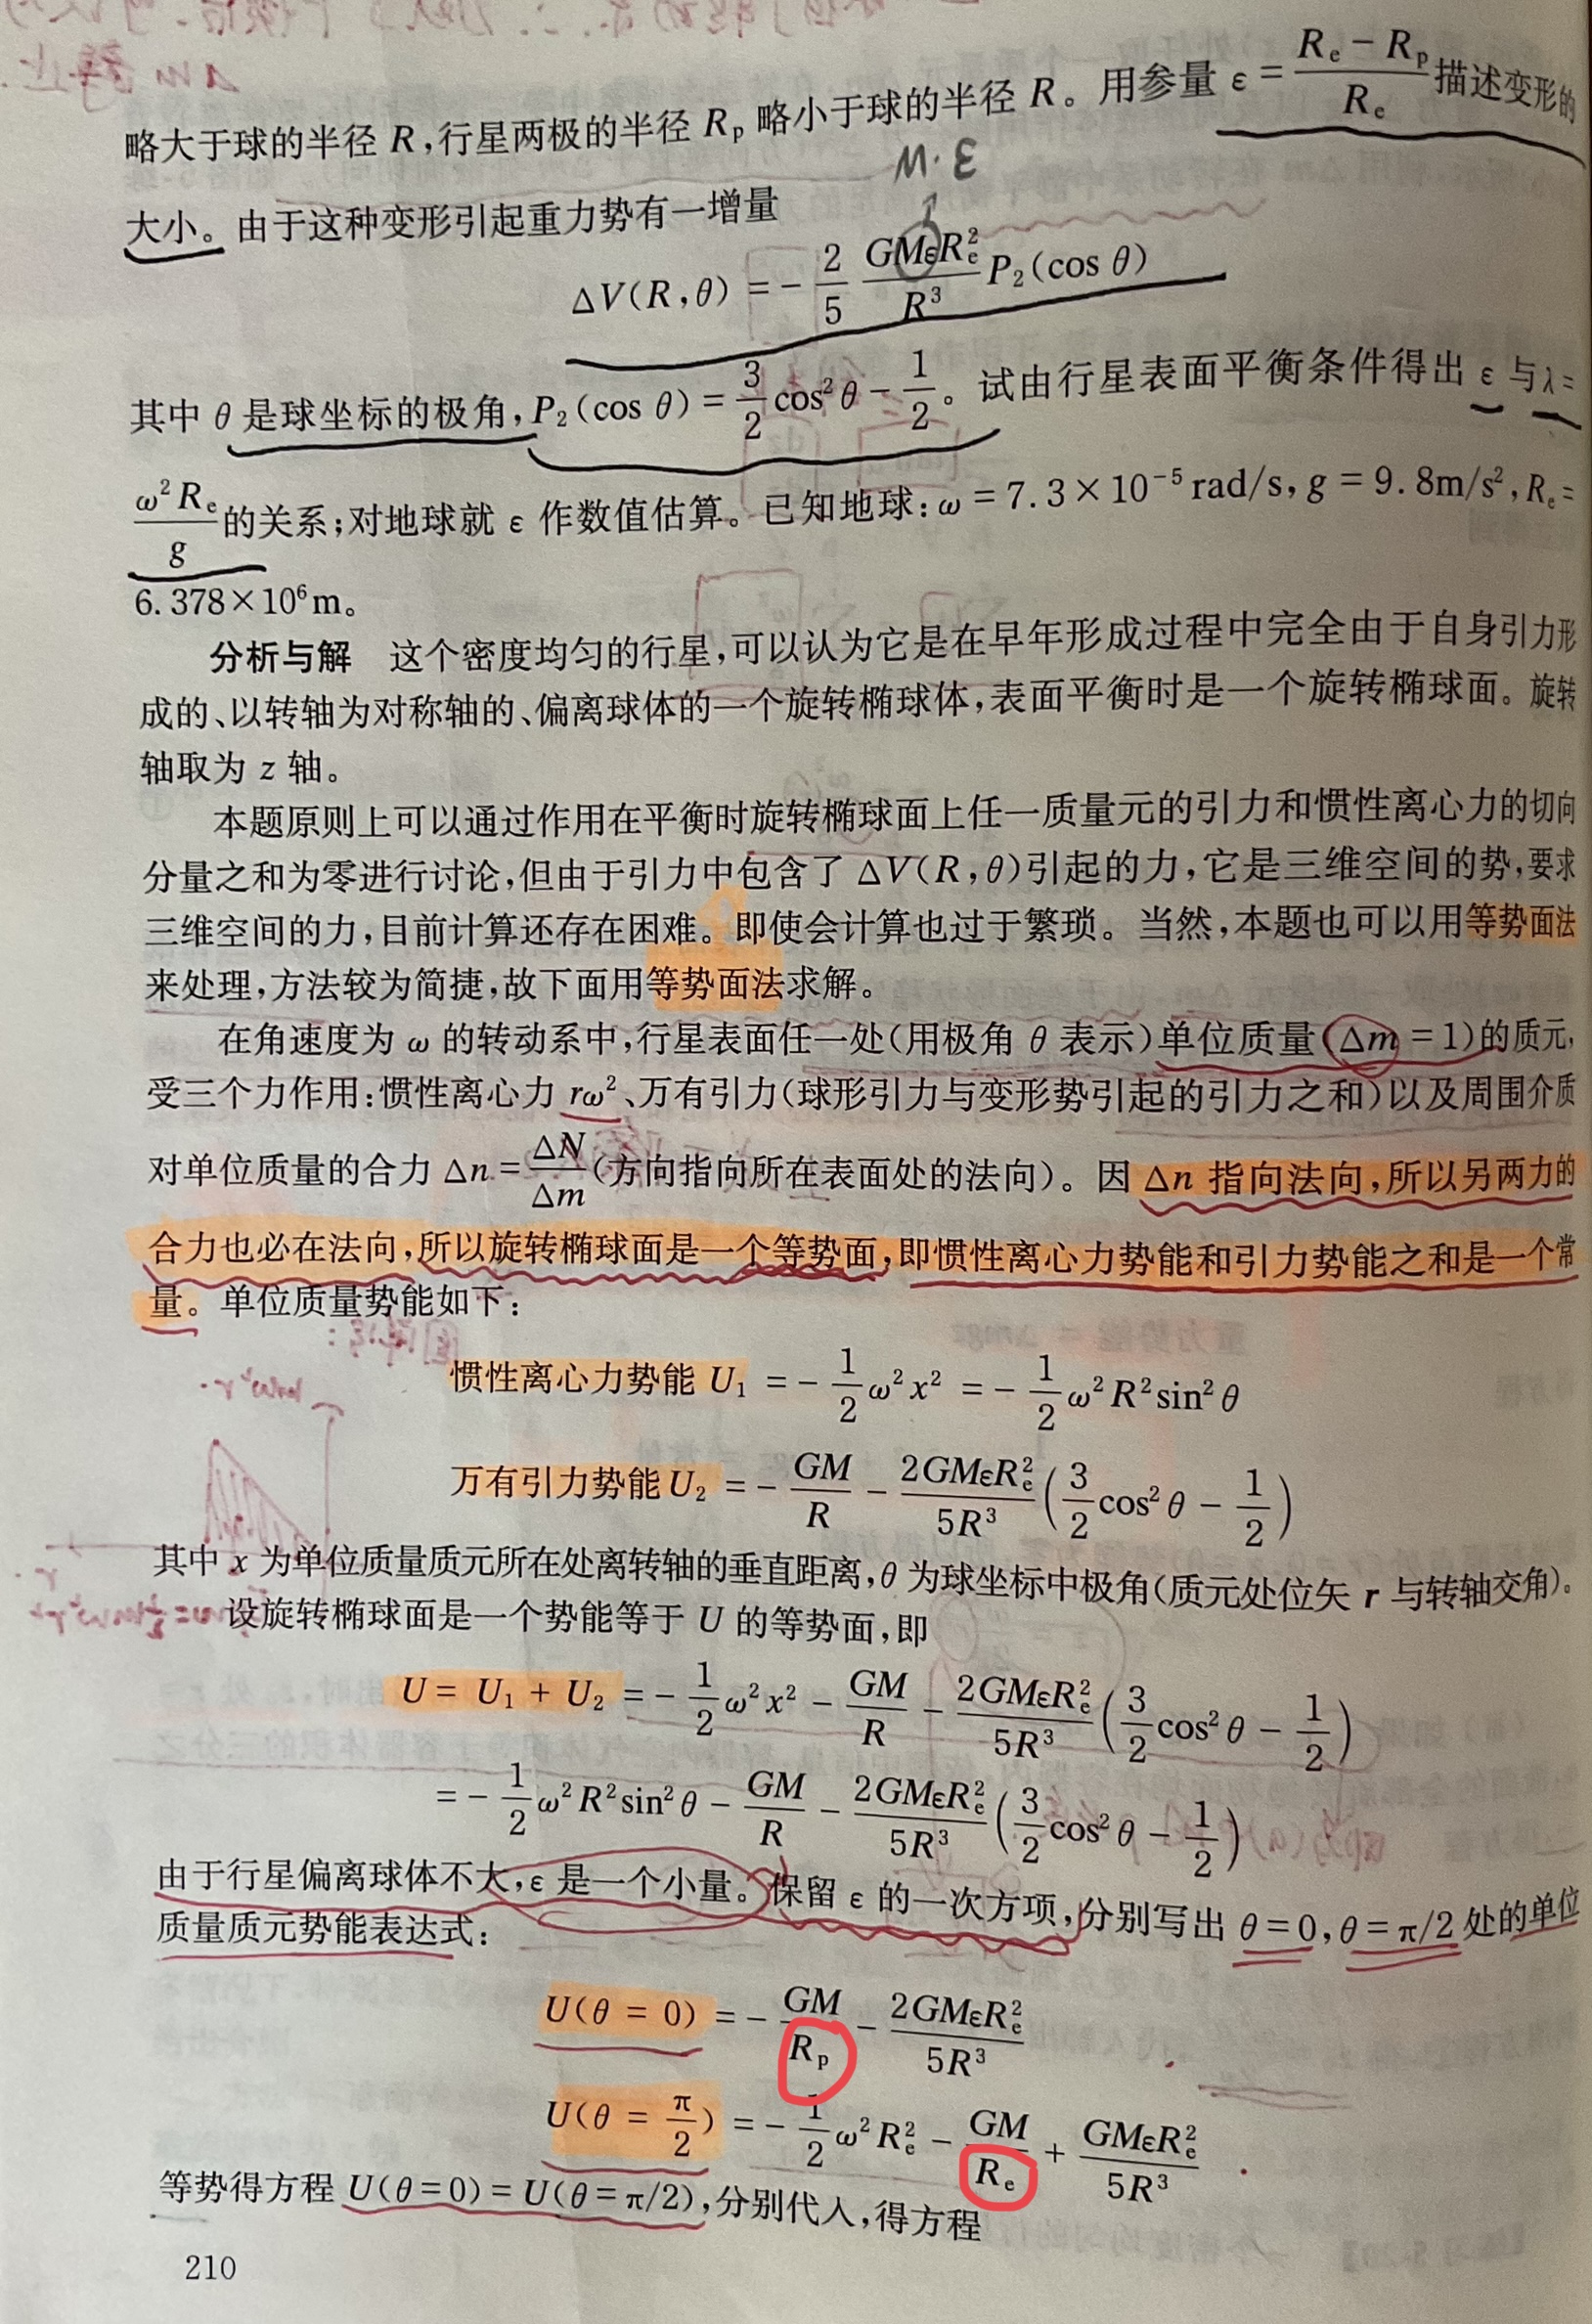 略大于球的半径 R,行星两极的半径 Rₚ 略小于球的半径 R。用参量 ε = (Rₑ − Rₚ)/Rₑ 描述变形的
M·ε
大小。由于这种变形引起重力势有一增量
ΔV(R,θ) = − 2/5 GMεRₑ²/R³ P₂(cos θ)
其中 θ 是球坐标的极角,P₂(cos θ) = 3/2 cos² θ − 1/2。试由行星表面平衡条件得出 ε 与 λ =
ω² Rₑ/g 的关系;对地球就 ε 作数值估算。已知地球:ω = 7.3×10⁻⁵ rad/s, g = 9.8m/s², Rₑ =
6.378×10⁶ m。
分析与解 这个密度均匀的行星,可以认为它是在早年形成过程中完全由于自身引力形
成的、以转轴为对称轴的、偏离球体的一个旋转椭球体,表面平衡时是一个旋转椭球面。旋转
轴取为 z 轴。
本题原则上可以通过作用在平衡时旋转椭球面上任一质量元的引力和惯性离心力的切向
分量之和为零进行讨论,但由于引力中包含了 ΔV(R,θ)引起的力,它是三维空间的势,要求
三维空间的力,目前计算还存在困难。即使会计算也过于繁琐。当然,本题也可以用等势面法
来处理,方法较为简捷,故下面用等势面法求解。
在角速度为 ω 的转动系中,行星表面任一处(用极角 θ 表示)单位质量(Δm = 1)的质元,
受三个力作用:惯性离心力 rω²、万有引力(球形引力与变形势引起的引力之和)以及周围介质
对单位质量的合力 Δn = ΔN/Δm (方向指向所在表面处的法向)。因 Δn 指向法向,所以另两力的
合力也必在法向,所以旋转椭球面是一个等势面,即惯性离心力势能和引力势能之和是一个常
量。单位质量势能如下:
惯性离心力势能 U₁ = − 1/2 ω² x² = − 1/2 ω² R² sin² θ
万有引力势能 U₂ = − GM/R − 2GMεRₑ²/5R³ (3/2 cos² θ − 1/2)
其中 x 为单位质量质元所在处离转轴的垂直距离,θ 为球坐标中极角(质元处位矢 r 与转轴交角)。
设旋转椭球面是一个势能等于 U 的等势面,即
U = U₁ + U₂ = − 1/2 ω² x² − GM/R − 2GMεRₑ²/5R³ (3/2 cos² θ − 1/2)
= − 1/2 ω² R² sin² θ − GM/R − 2GMεRₑ²/5R³ (3/2 cos² θ − 1/2)
由于行星偏离球体不大,ε 是一个小量。保留 ε 的一次方项,分别写出 θ = 0,θ = π/2 处的单位
质量质元势能表达式:
U(θ = 0) = − GM/Rₚ − 2GMεRₑ²/5R³
U(θ = π/2) = − 1/2 ω² Rₑ² − GM/Rₑ + GMεRₑ²/5R³
等势得方程 U(θ = 0) = U(θ = π/2),分别代入,得方程
210